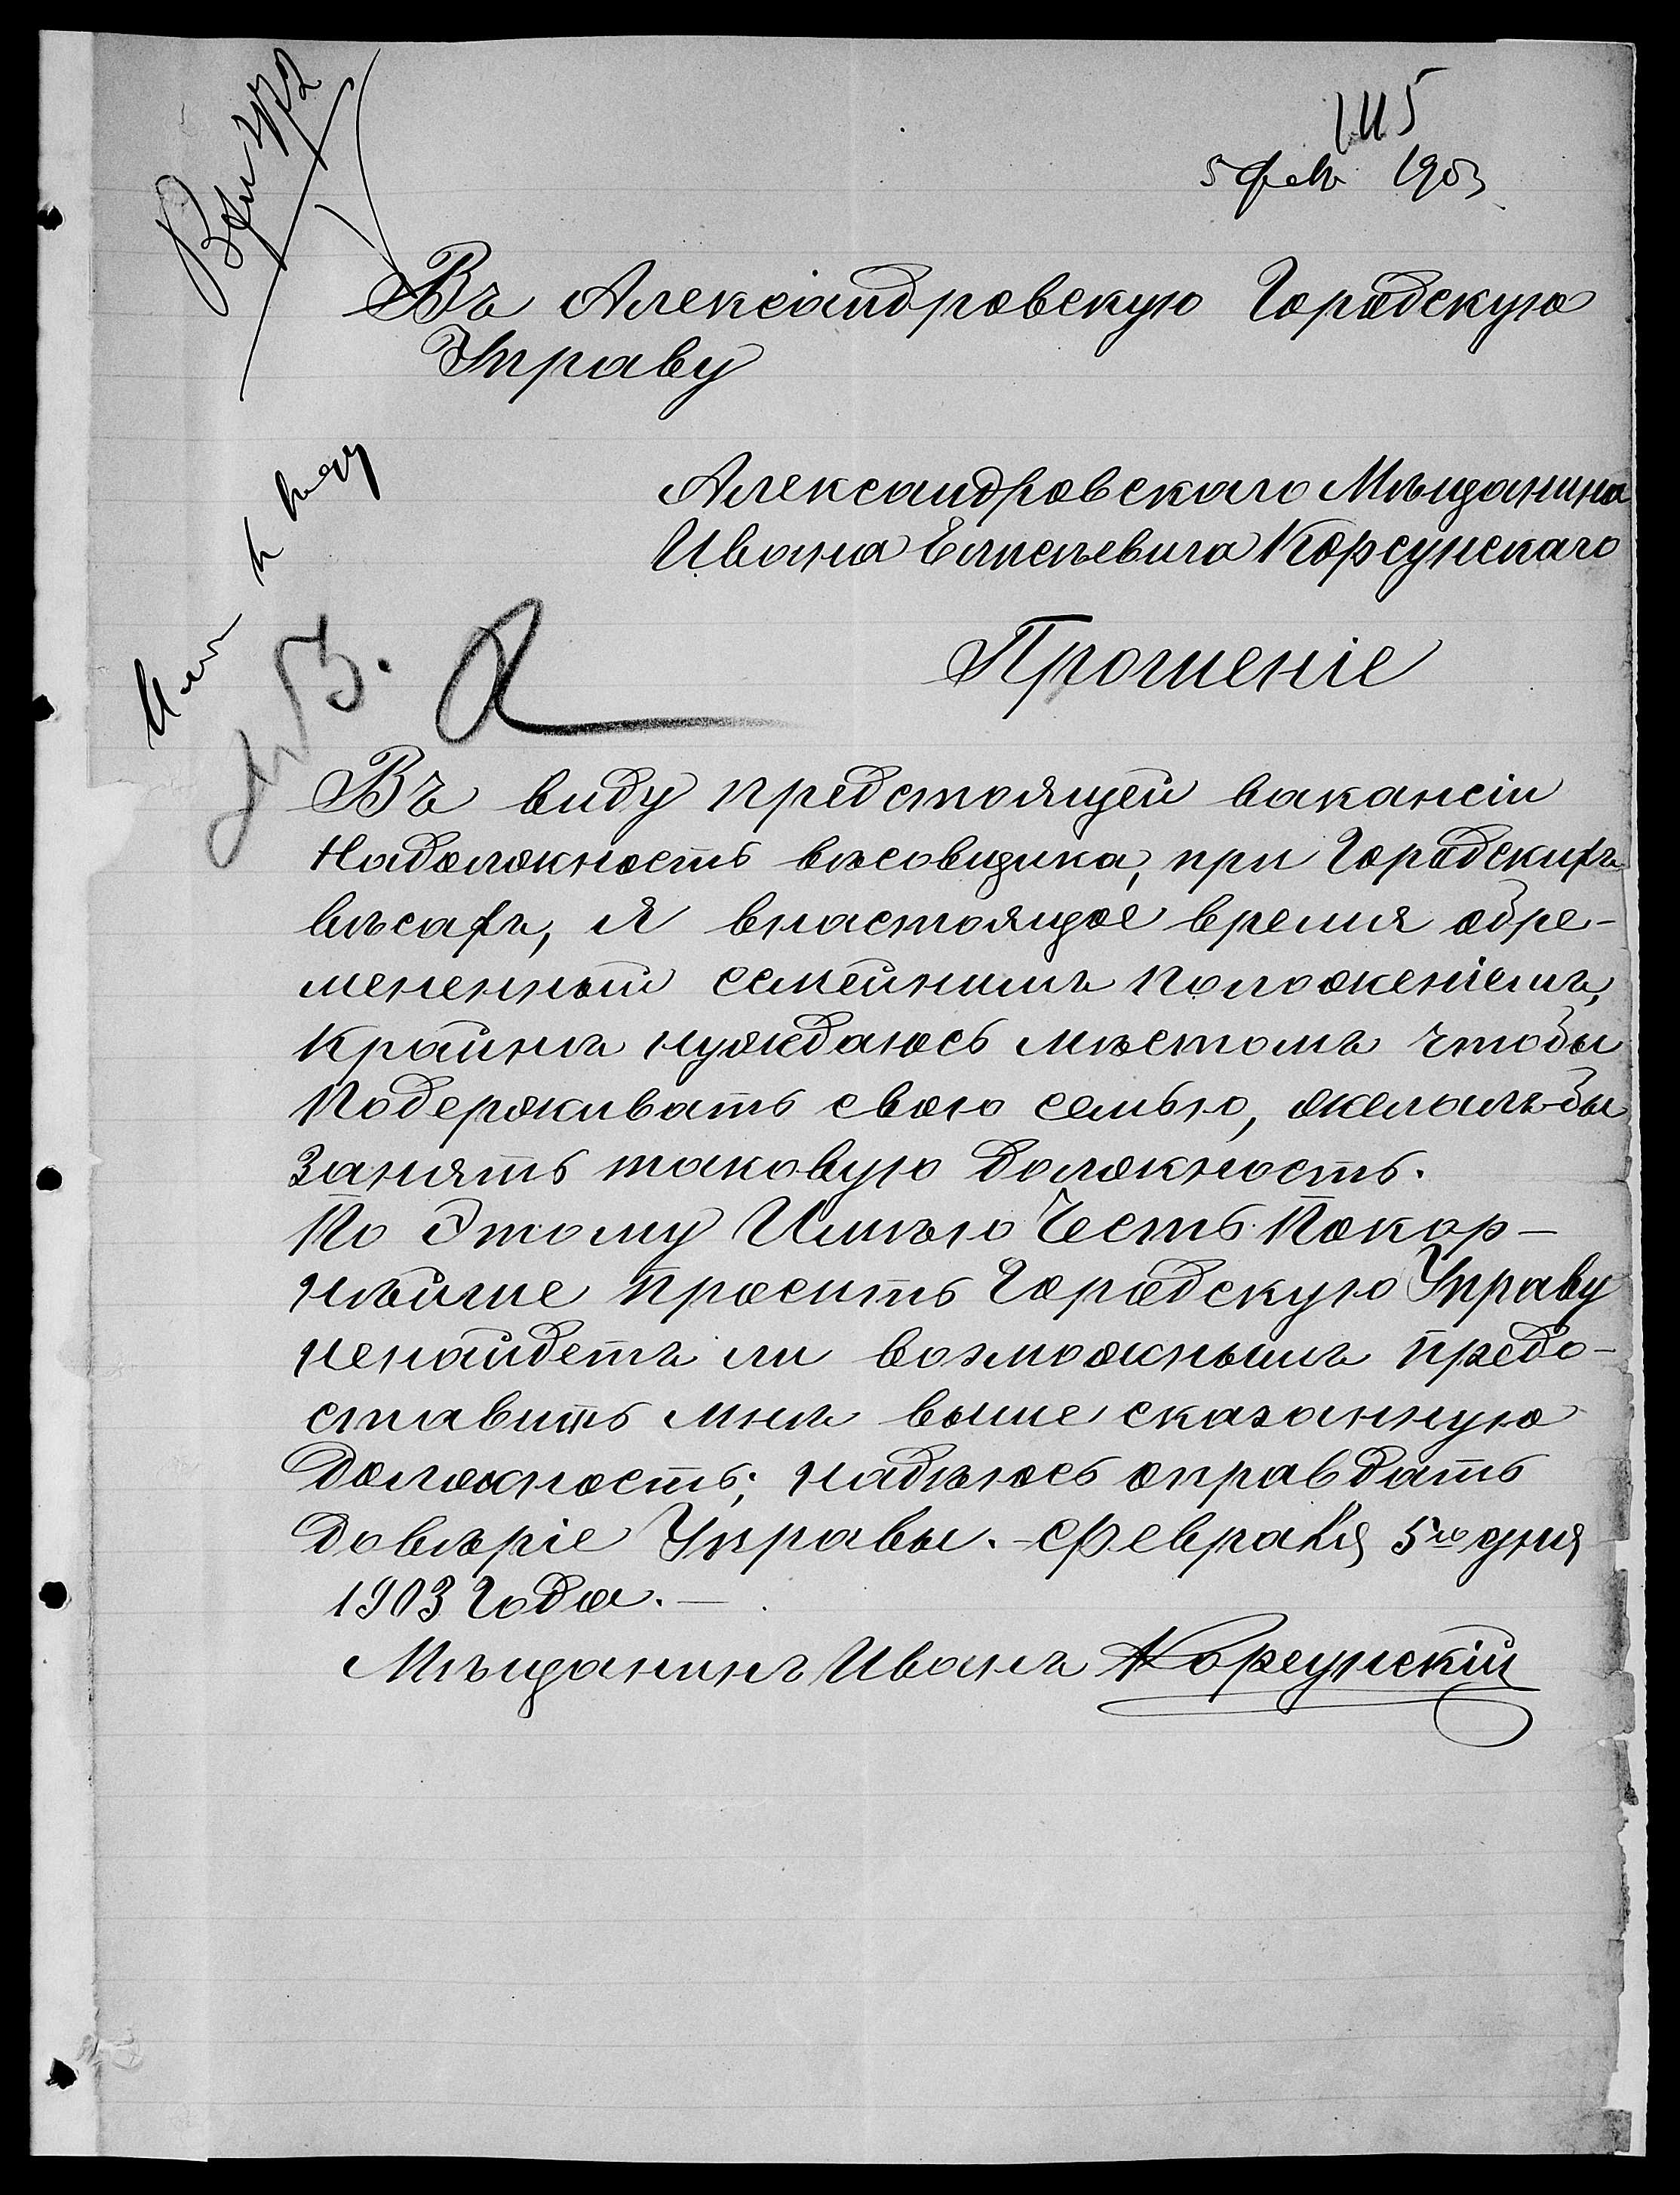 1115
5 фев 1903
Въ Алексіандровскую Городскую
Управу
Александровскаго Мѣщанина
Ивана Корсунскаго
Прошеніе
Въ виду предстоящей вакансіи
Надолжность вѣсовщика, при Городскихъ
вѣсахъ, Я внастоящое время обре-
мененный семейнимъ положеніемъ,
крайнѣ нуждаюсь мѣстомъ чтобы
Подерживать свою семью, желалъ-бы
Занять таковую должность.
По Этому Имѣю Честь Покор-
нѣйше просить Городскую Управу
ненайдетъ ли возможнымъ предо-
ставить мнѣ выше сказанную
Должность; надѣюсь оправдать
довѣріе Управы. - Февраля 5го дня
1903 Года. —
Мѣщанинъ Иванъ Корсунскій